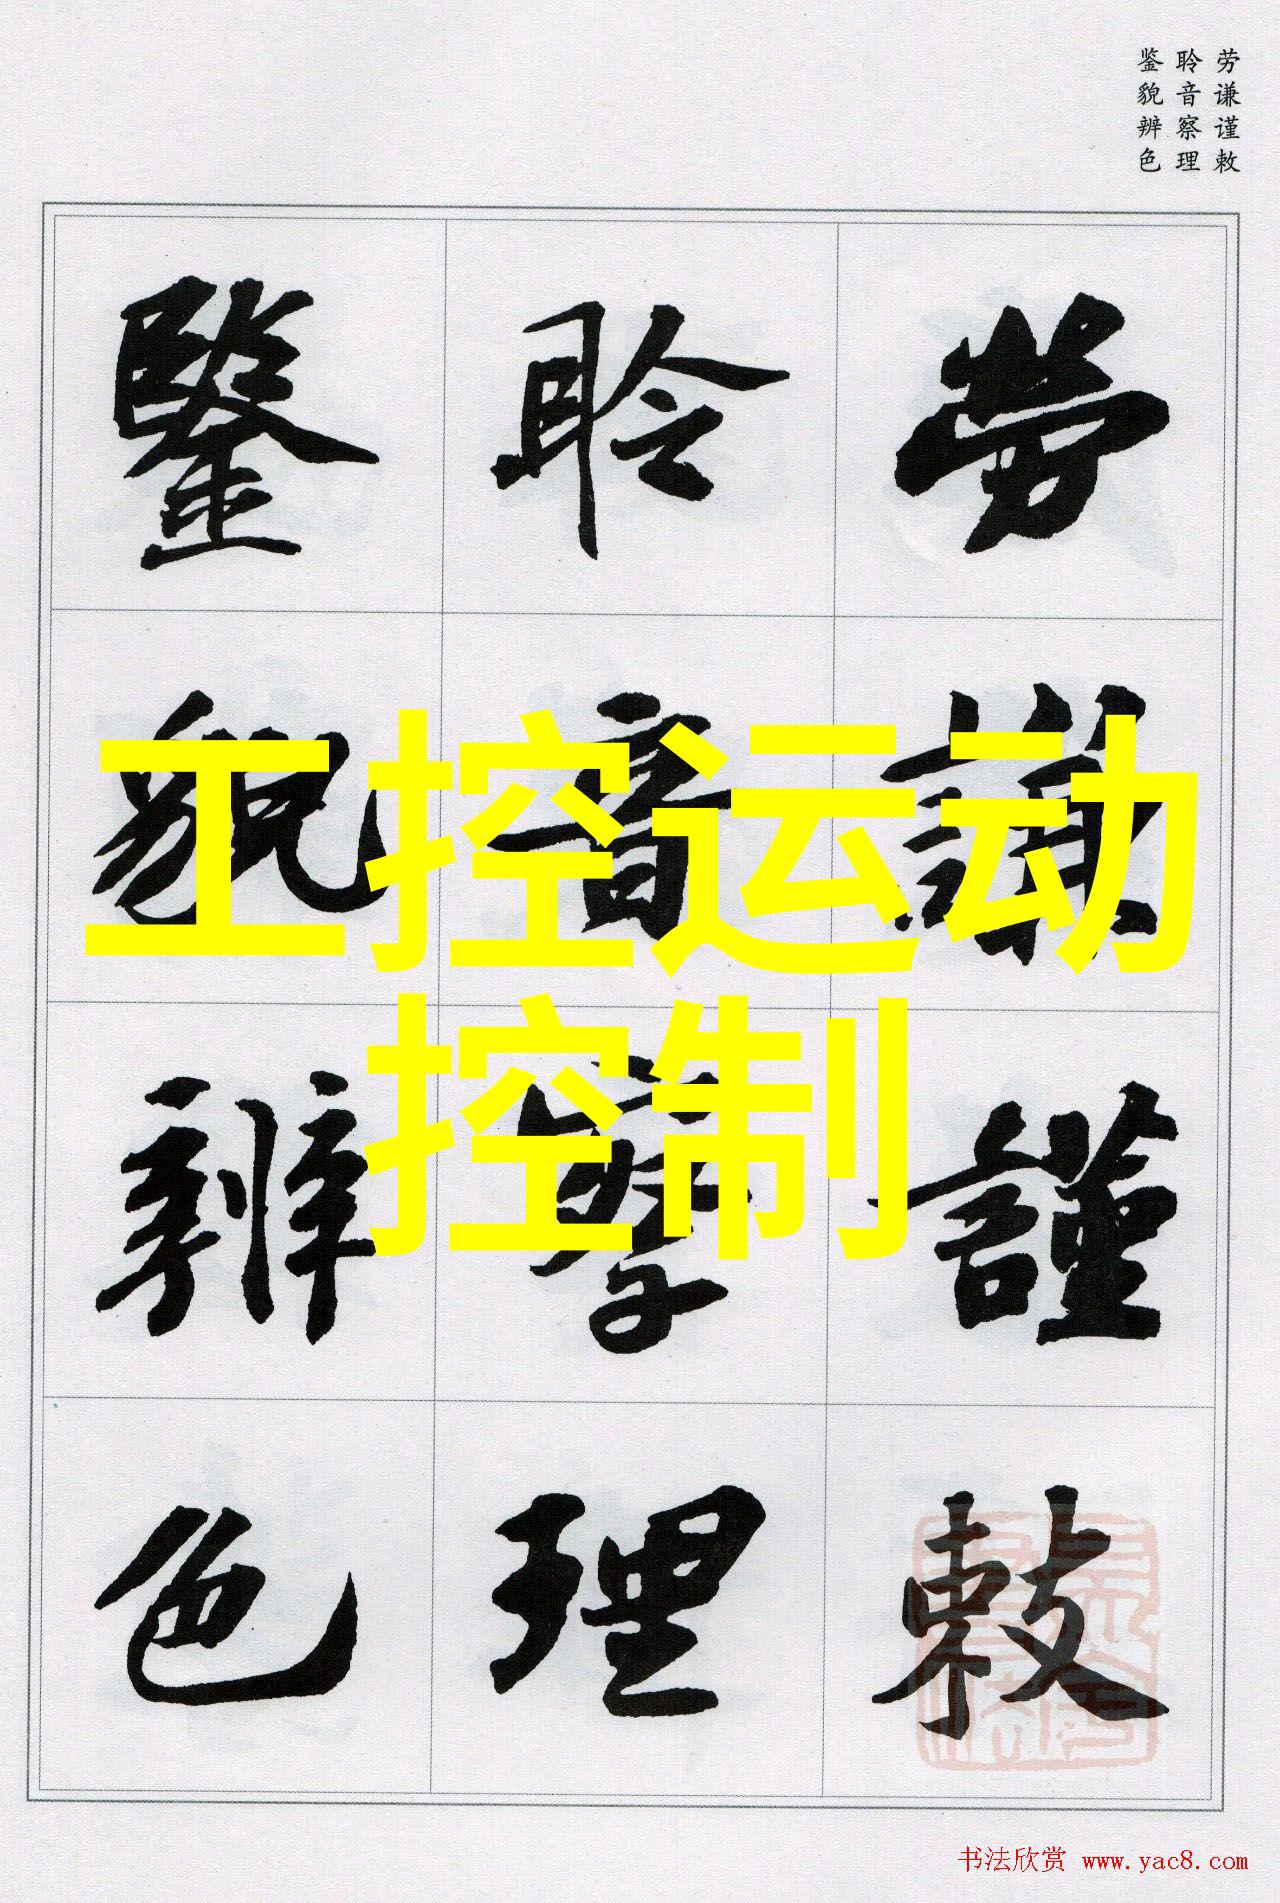 劳谦谨敕
聆音察理
鉴貌辨色
勞謙謹敕
聆音察理
鑒貌辨色
工控运动
控制
书法欣赏 www.yac8.com